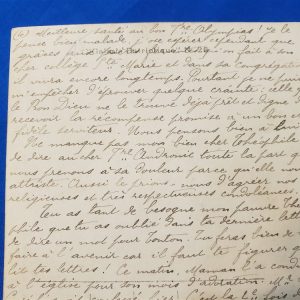 Meilleure santé au bon Fre Olympias. Je le
pense bien malade, j'ose espérer cependant que
grâces aux prières qu'on fait à son
cher collège Ste Marie et dans sa Congrégation
il vivra encore longtemps. Pourtant je ne puis
m'empêcher d'éprouver quelque crainte: celle que
le Bon Dieu ne le trouve déjà prêt et digne de
recevoir la récompense promise à un bon et
fidèle serviteur. Nous pensons bien à lui
Ne manque pas mon bien cher Théophile
de dire au cher Fre Andronic toute la part que
nous prenons à sa douleur parce qu'elle nous
attriste. Aussi le prions-nous d'agréer nos
religieuses et très respectueuses condoléances.
Tu as tant de besogne mon pauvre Théo-
phile que tu as oublié dans ta dernière lettre
de dire un mot pour Toulon. Tu feras bien de
faire à l'avenir car il faut te figurer
lit tes lettres! Ce matin, Maman l'a
à l'église pour son mois d'adoration. Mr